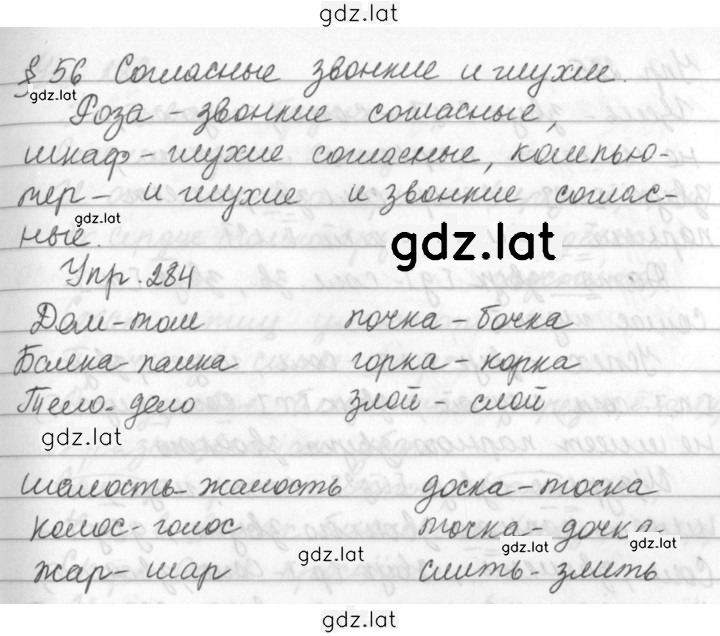 gdz.lat
§ 56 Согласные звонкие и глухие.
gdz.lat
Роза - звонкие согласные,
шкаф - глухие согласные, компью-
тер - и глухие и звонкие соглас-
gdz.lat
ные.
gdz.lat
Упр. 284
Дом - том почка - бочка
Балка - палка горка - корка
Тело - дело злой - слой
gdz.lat
шалость - жалость доска - тоска
колос - голос точка - дочка.
gdz.lat gdz.lat gdz.lat
жар - шар слить - злить
gdz.lat